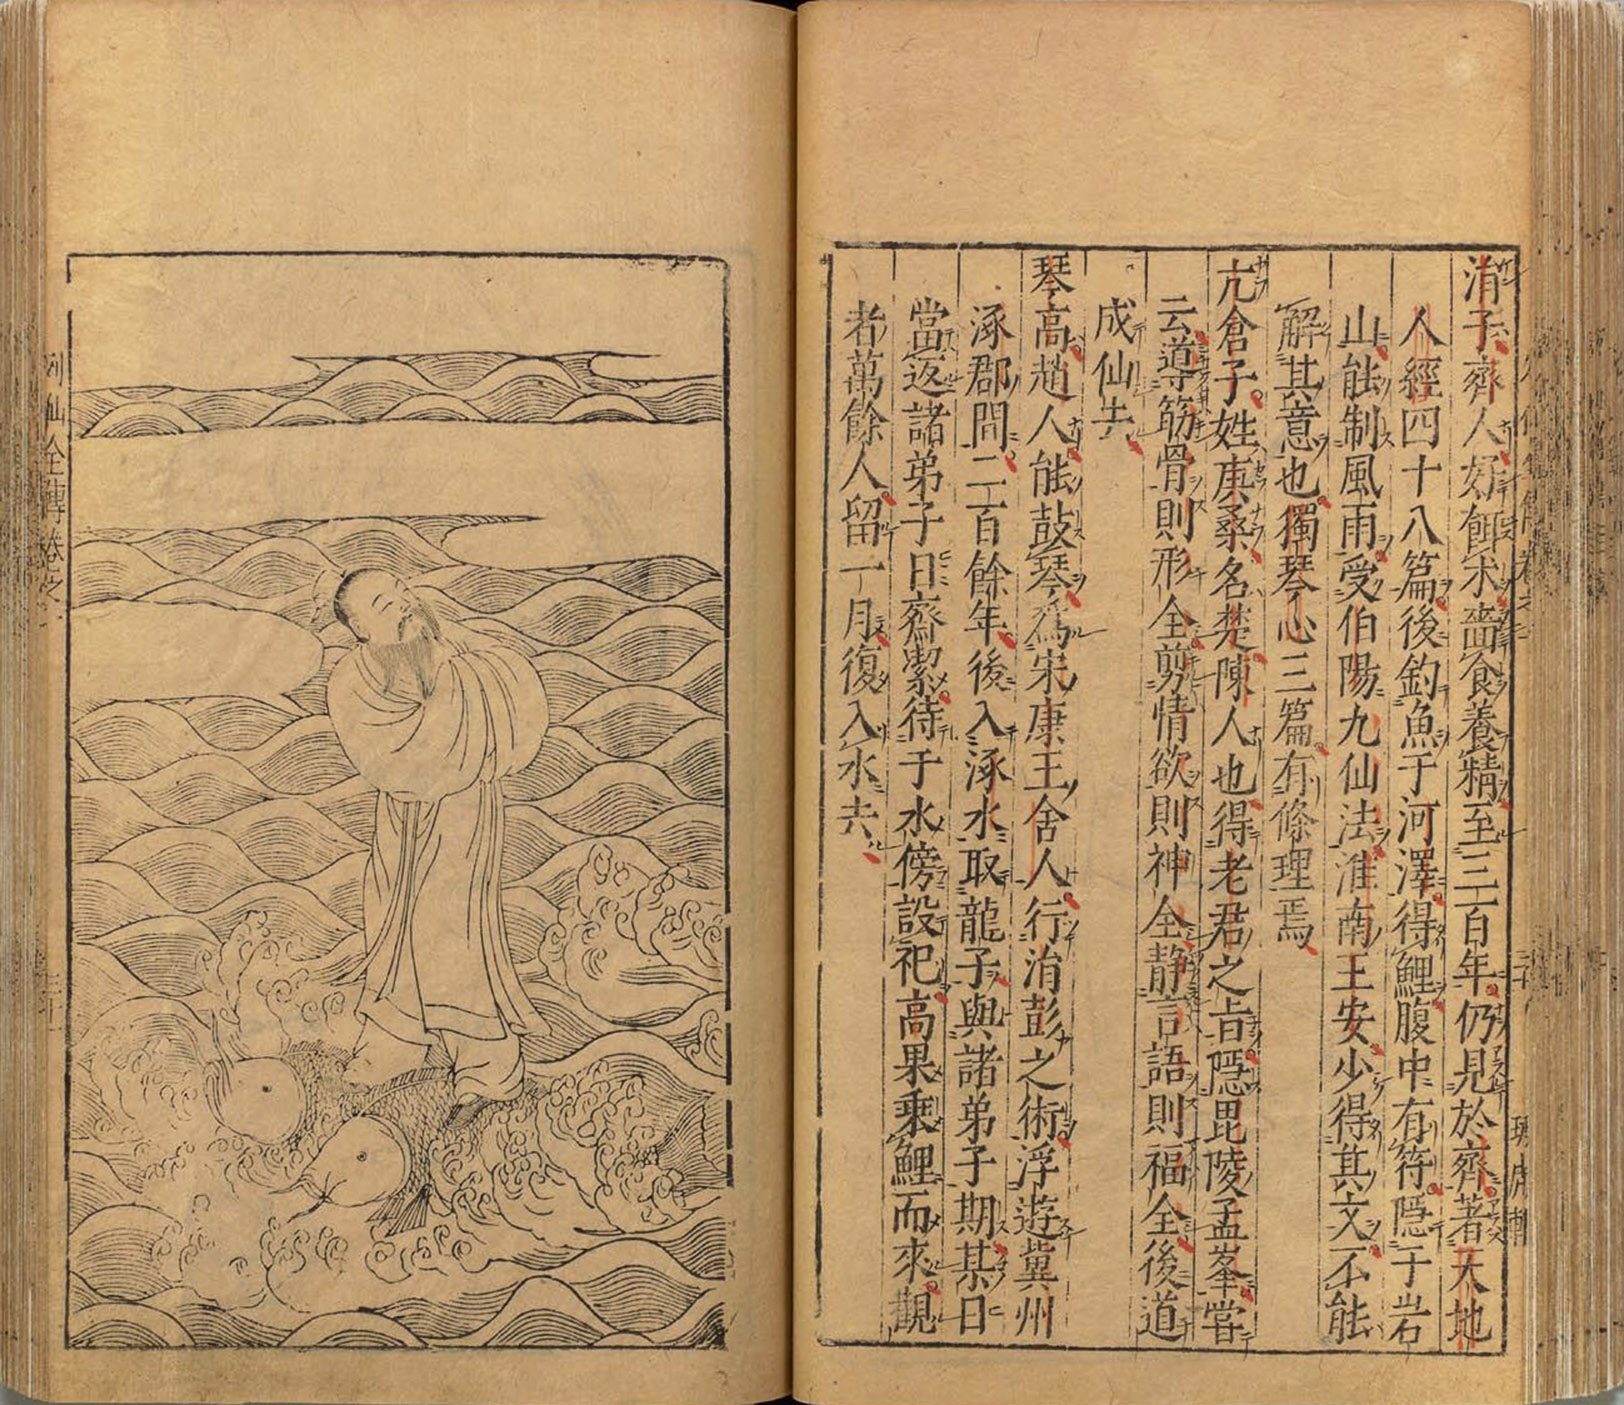 涓子齊人好餌朮嗇食養精至三百年仍見於齊著天地
人經四十八篇後釣魚于河澤得鯉腹中有符隠于岩
山能制風雨受伯陽九仙法淮南王安少得其文不能
解其意也獨琴心三篇有條理焉
亢倉子姓庚桑名楚陳人也得老君之旨隠毘陵孟峯嘗
云導筋骨則形全剪情欲則神全静言語則福全後道
成仙去
琴高趙人能鼓琴爲宋康王舍人行涓彭之術浮遊冀州
涿郡間二百餘年後入涿水取龍子與諸弟子期某日
當返諸弟子日齋潔待于水傍設祀高果乗鯉而來觀
者萬餘人留一月復入水去
列仙全傳卷之一